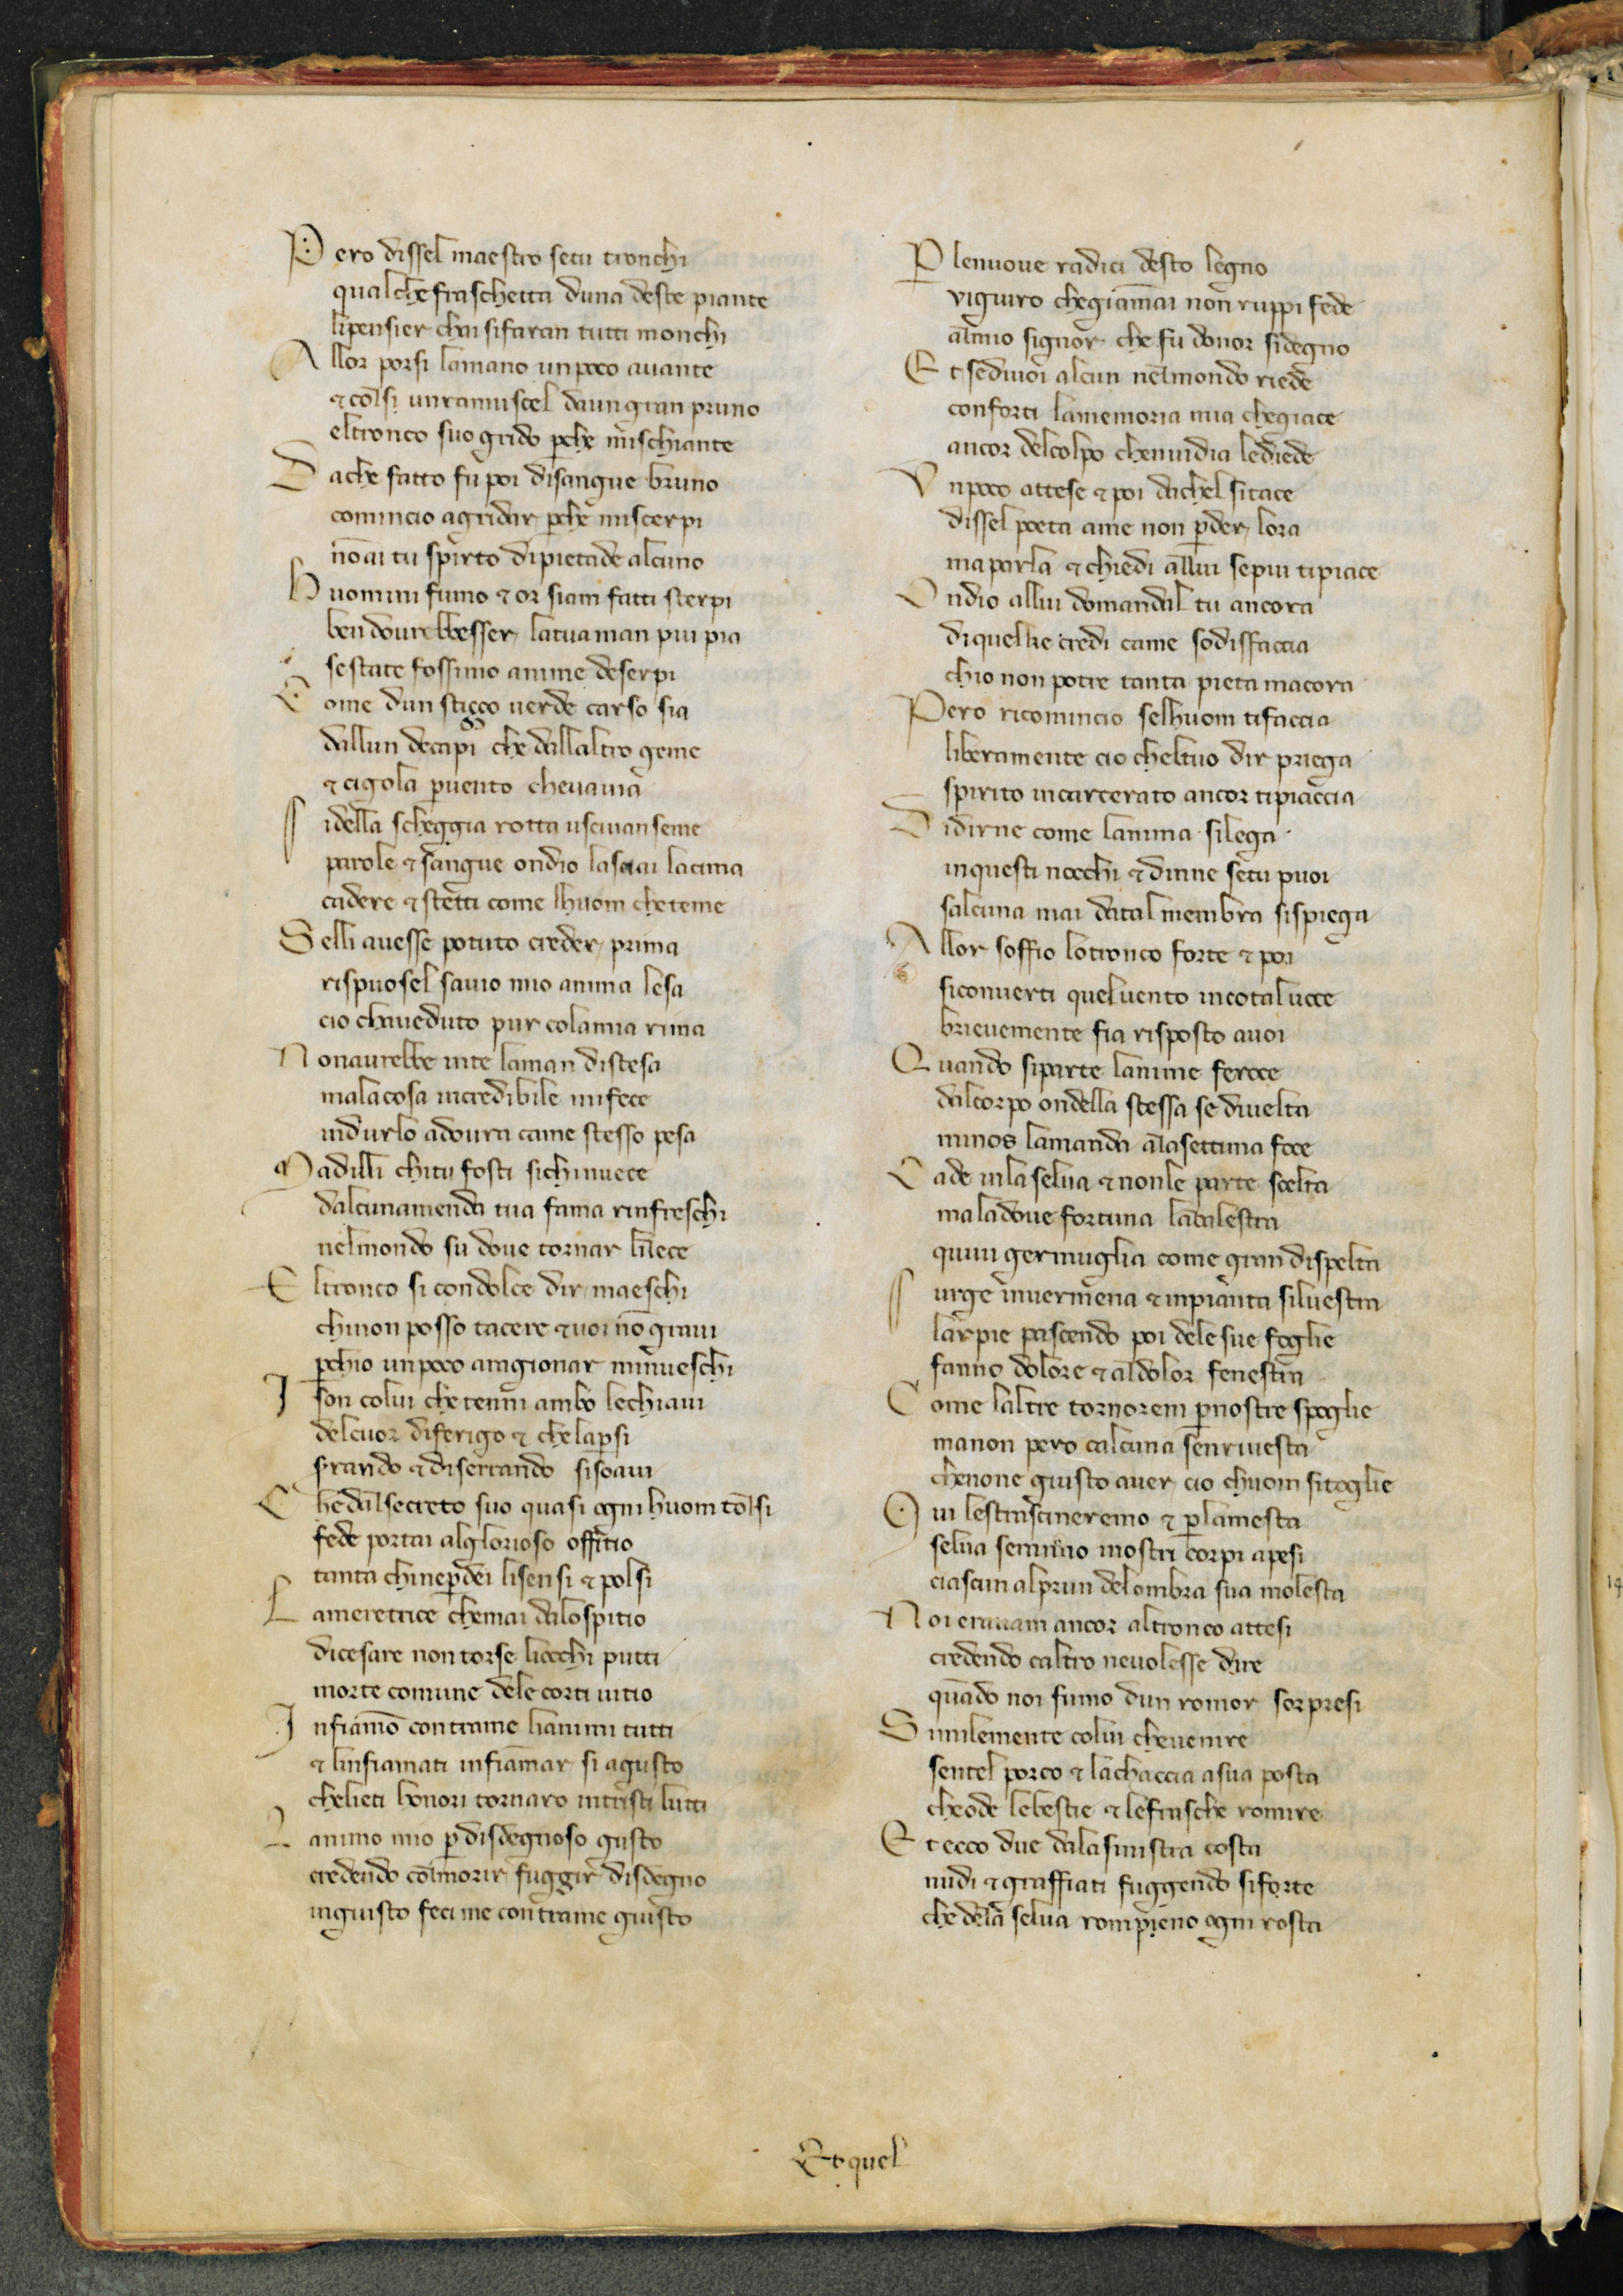 Pero dissel maestro setu tronchi
qualche fraschetta duna deste piante
lipensier chai sifaran tutti monchi
Allor porsi lamano unpoco auante
& colsi unramuscel daungran pruno
eltronco suo grido pche mischiante
Dache fatto fu poi disangue bruno
comincio agridar pche miscerpi
nōai tu spirto dipietade alcuno
Huomini fumo & or siam fatti sterpi
ben dourebbesser latuaman piu pia
sestate fossimo anime deserpi
Come dun stizzo uerde carso sia
dallun decapi che dallaltro geme
& cigola puento cheuauia
Sidella scheggia rotta usciuanseme
parole & sangue ondio lasciai lacima
cadere & stetti come lhuom cheteme
Selli auesse potuto creder prima
rispuosel sauio mio anima lesa
cio chaueduto pur colamia rima
Nonaurebbe inte laman distesa
malacosa incredibile mifece
indurlo adoura came stesso pesa
Madilli chitu fosti sichinuece
dalcunamenda tua fama rinfreschi
nelmondo su doue tornar lilece
Eltronco si condolce dir maeschi
chinon posso tacere & uoi nō graui
pchio unpoco aragionar minueschi
I son colui che tenni ambo lechiaui
delcuor diferigo & chelapsi
srando & diserrando sisoaui
Chedalsecreto suo quasi ogni huom tolsi
fede portai alglorioso offitio
tanta chineperdei lisensi & polsi
Lameretrice chemai dalospitio
dicesare non torse liocchi putti
morte comune dele corti uitio
Infiamō contrame lianimi tutti
& linfiamati infiāmar si agusto
chelieti honori tornaro intristi lutti
Lanimo mio p disdegnoso gusto
credendo colmorir fuggir disdegno
ingiusto fecime contrame giusto
P lenuoue radici desto legno
uigiuro chegiāmai non ruppi fede
almio signor che fu donor sidegno
Et sediuoi alcun nelmondo riede
conforti lamemoria mia chegiace
ancor delcolpo chenuidia lediede
Unpoco attese & poi dachel sitace
dissel poeta ame non pder lora
maparla & chiedi allui sepiu tipiace
Ondio allui domandal tu ancora
diquelke credi came sodisfaccia
chio non potre tanta pieta macora
Pero ricomincio selhuom tifaccia
liberamente cio cheltuo dir priega
spirito incarcerato ancor tipiaccia
Didirne come lanima silega
inquesti nocchi & dinne setu puoi
salcuna mai datal membra sispiega
Allor soffio lotronco forte & poi
siconuerti queluento incotal uoce
brieuemente fia risposto auoi
Quando siparte lanime feroce
dalcorpo ondella stessa se diuelta
minos lamanda alasettima foce
Cade inla selua & nonle parte scelta
maladoue fortuna labalestra
quiui germuglia come gran dispelta
Surge inuermena & inpianta siluestra
larpie pascendo poi dele sue foglie
fanno dolore & aldolor fenestra
Come laltre tornorem pnostre spoglie
manon pero calcuna senriuesta
chenone giusto auer cio chuom sitoglie
Qui lestrascineremo & plamesta
selua seranno inostri corpi apesi
ciascun alprun delombra sua molesta
Noi erauam ancor altronco attesi
credendo caltro neuolesse dire
quādo noi fumo dun romor sorpresi
Similemente colui cheuenire
sentel porco & lachaccia asua posta
cheode lebestie & lefrasche romire
Et ecco due dalasinistra costa
nudi & graffiati fuggendo siforte
che dela selua rompieno ogni rosta
Et quel